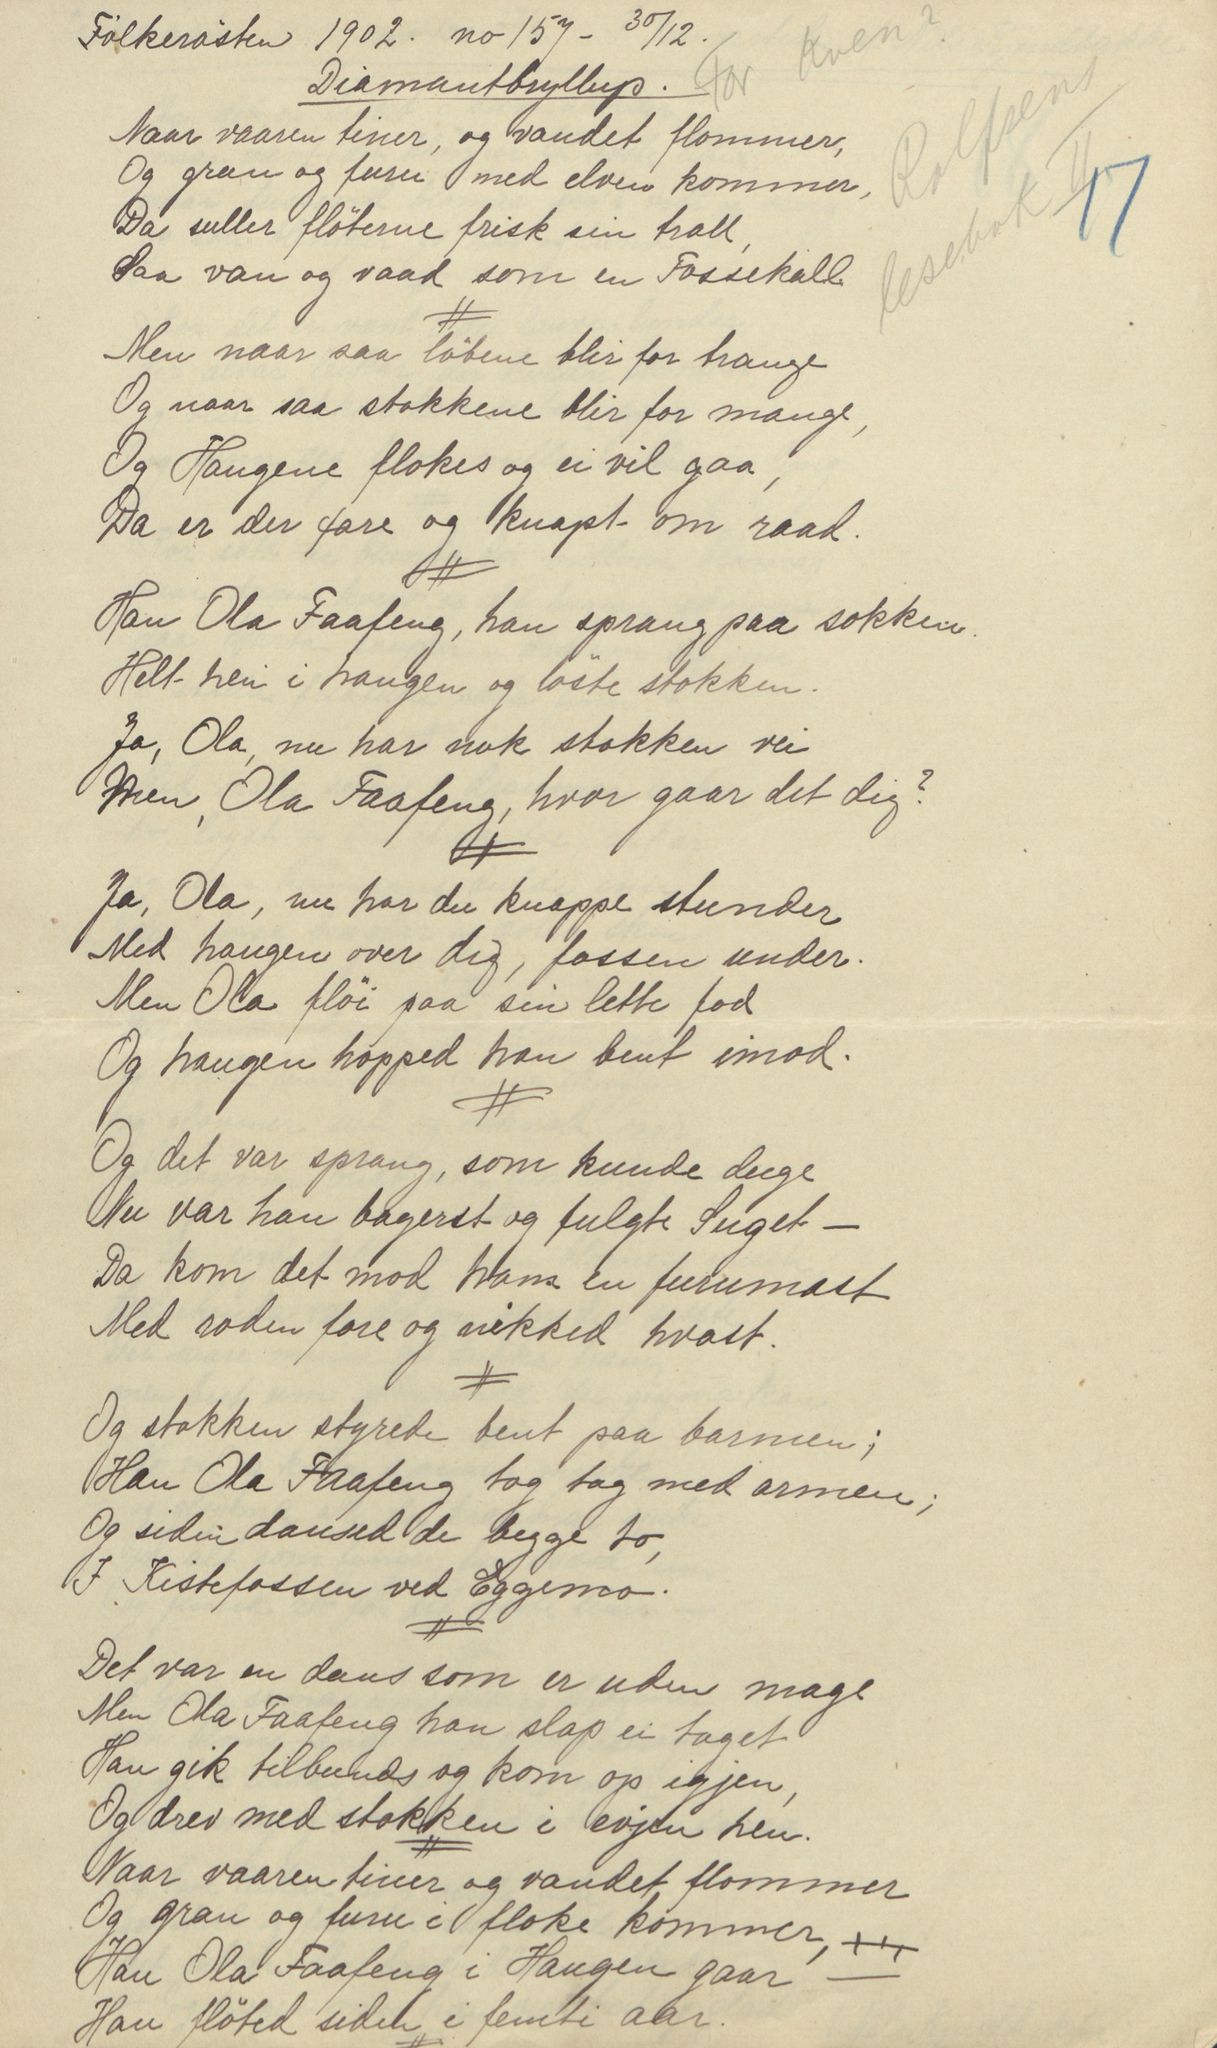 Folkerösten 1902. no 157 - 30/12.
Diamantbryllup. For kven?
Rolfsens
lesebok II
17
Naar vaaren tiner, og vandet flommer,
Og gran og furu med elven kommer,
Da suller flöterne frisk sin trall,
Saa van og vaad som en Fossekall
Men naar saa löbene blir for trange
Og naar saa stokkene blir for mange,
Og Haugene flokes og ei vil gaa,
Da er der fare og knapt om raad.
Han Ola Faafeng, han sprang paa sokken.
Helt hen i haugen og löste stokken.
Ja, Ola, nu har nok stokken vei
Men, Ola Faafeng, hvor gaar det dig?
Ja, Ola, nu har du knappe stunder
Med haugen over dig, fossen under.
Men Ola flöi paa sin lette fod
Og haugen hopped han bent imod.
Og det var sprang, som kunde duge
Nu var han bagerst og fulgte Suget —
Da kom det mod ham en furumast
Med roden fore og nikked hvast.
Og stokken styrede bent paa barmen;
Han Ola Faafeng tog tag med armen;
Og siden dansed de begge to,
I Kistefossen ved Eggemo.
Det var en dans som er uden mage
Men Ola Faafeng han slap ei taget
Han gik tilbunds og kom op igjen,
Og drev med stokken i evjen hen.
Naar vaaren tiner og vandet flommer
Og gran og furu i floke kommer,
Han Ola Faafeng i Haugen gaar —
Han flöted siden i femti aar.